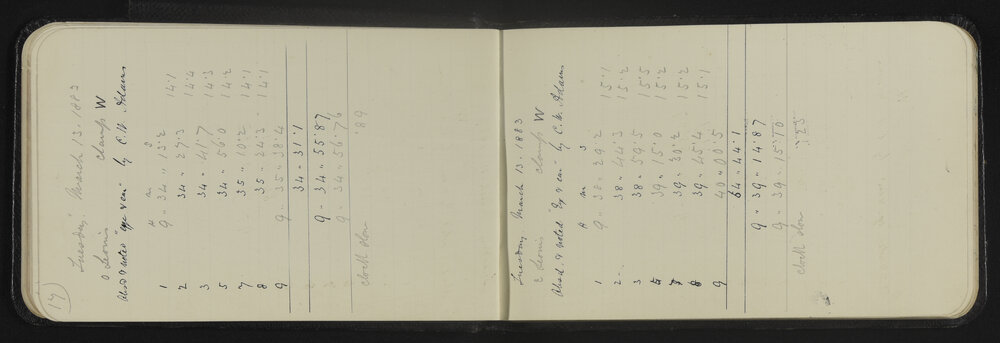 17
Tuesday, March 13. 1883
o Leonis clamp W
Obsd & noted "eye & ear" by C. W. Adams
H m s
1 9 " 34 " 13.2 14.1
2 34 " 27.3 14.4
3 34 " 41.7 14.3
5 34 " 56.0 14.2
7 35 " 10.2 14.1
8 35 " 24.3 14.1
9 9 " 35 " 38.4
34 " 31.1
9 " 34 " 55.87
9 " 34 " 56.76
clock slow .89
Tuesday, March 13. 1883
ε Leonis clamp W
Obsd. & noted "Ey & ear" by C. W. Adams
H m s
1 9 " 38 " 29.2 15.1
2 38 " 44.3 15.2
3 38 " 59.5 15.5
5 39 " 15.0 15.2
7 39 " 30.2 15.2
8 39 " 45.4 15.1
9 40 " 00.5
64 " 44.1
9 " 39 " 14.87
9 " 39 " 15.70
clock slow